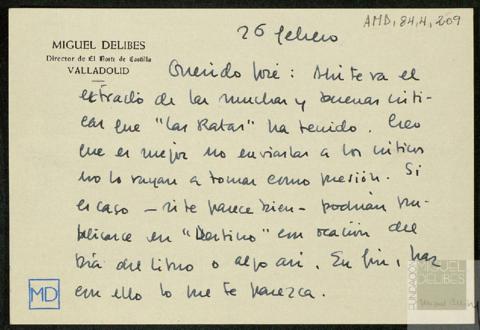 AMD, 84, 4, 209
26 febrero
MIGUEL DELIBES
Director de El Norte de Castilla
VALLADOLID
Querido José: Ahí te va el
extracto de las muchas y buenas críti-
cas que "Las Ratas" ha tenido. Creo
que es mejor no enviarlas a los críticos
no lo vayan a tomar como presión. Si
es caso — si te parece bien — podrían pu-
blicarse en "Destino" con ocasión del
Día del Libro o algo así. En fin, haz
con ello lo que te parezca.
MD
FUNDACIÓN
MIGUEL
DELIBES